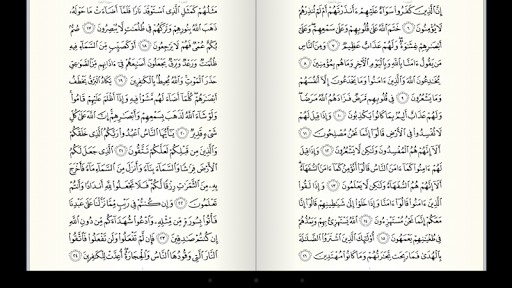 إِنَّ ٱلَّذِينَ كَفَرُوا۟ سَوَآءٌ عَلَيْهِمْ ءَأَنذَرْتَهُمْ أَمْ لَمْ تُنذِرْهُمْ
لَا يُؤْمِنُونَ ٦ خَتَمَ ٱللَّهُ عَلَىٰ قُلُوبِهِمْ وَعَلَىٰ سَمْعِهِمْ وَعَلَىٰٓ
أَبْصَـٰرِهِمْ غِشَـٰوَةٌ وَلَهُمْ عَذَابٌ عَظِيمٌ ٧ وَمِنَ ٱلنَّاسِ
مَن يَقُولُ ءَامَنَّا بِٱللَّهِ وَبِٱلْيَوْمِ ٱلْـَٔاخِرِ وَمَا هُم بِمُؤْمِنِينَ ٨
يُخَـٰدِعُونَ ٱللَّهَ وَٱلَّذِينَ ءَامَنُوا۟ وَمَا يَخْدَعُونَ إِلَّآ أَنفُسَهُمْ
وَمَا يَشْعُرُونَ ٩ فِى قُلُوبِهِم مَّرَضٌ فَزَادَهُمُ ٱللَّهُ مَرَضًا
وَلَهُمْ عَذَابٌ أَلِيمٌۢ بِمَا كَانُوا۟ يَكْذِبُونَ ١٠ وَإِذَا قِيلَ لَهُمْ
لَا تُفْسِدُوا۟ فِى ٱلْأَرْضِ قَالُوٓا۟ إِنَّمَا نَحْنُ مُصْلِحُونَ ١١
أَلَآ إِنَّهُمْ هُمُ ٱلْمُفْسِدُونَ وَلَـٰكِن لَّا يَشْعُرُونَ ١٢ وَإِذَا قِيلَ
لَهُمْ ءَامِنُوا۟ كَمَآ ءَامَنَ ٱلنَّاسُ قَالُوٓا۟ أَنُؤْمِنُ كَمَآ ءَامَنَ ٱلسُّفَهَآءُ
أَلَآ إِنَّهُمْ هُمُ ٱلسُّفَهَآءُ وَلَـٰكِن لَّا يَعْلَمُونَ ١٣ وَإِذَا لَقُوا۟
ٱلَّذِينَ ءَامَنُوا۟ قَالُوٓا۟ ءَامَنَّا وَإِذَا خَلَوْا۟ إِلَىٰ شَيَـٰطِينِهِمْ قَالُوٓا۟ إِنَّا
مَعَكُمْ إِنَّمَا نَحْنُ مُسْتَهْزِءُونَ ١٤ ٱللَّهُ يَسْتَهْزِئُ بِهِمْ وَيَمُدُّهُمْ
فِى طُغْيَـٰنِهِمْ يَعْمَهُونَ ١٥ أُو۟لَـٰٓئِكَ ٱلَّذِينَ ٱشْتَرَوُا۟ ٱلضَّلَـٰلَةَ
بِٱلْهُدَىٰ فَمَا رَبِحَت تِّجَـٰرَتُهُمْ وَمَا كَانُوا۟ مُهْتَدِينَ ١٦
مَثَلُهُمْ كَمَثَلِ ٱلَّذِى ٱسْتَوْقَدَ نَارًا فَلَمَّآ أَضَآءَتْ مَا حَوْلَهُۥ
ذَهَبَ ٱللَّهُ بِنُورِهِمْ وَتَرَكَهُمْ فِى ظُلُمَـٰتٍ لَّا يُبْصِرُونَ ١٧ صُمٌّۢ
بُكْمٌ عُمْىٌ فَهُمْ لَا يَرْجِعُونَ ١٨ أَوْ كَصَيِّبٍ مِّنَ ٱلسَّمَآءِ فِيهِ
ظُلُمَـٰتٌ وَرَعْدٌ وَبَرْقٌ يَجْعَلُونَ أَصَـٰبِعَهُمْ فِىٓ ءَاذَانِهِم مِّنَ ٱلصَّوَٰعِقِ
حَذَرَ ٱلْمَوْتِ وَٱللَّهُ مُحِيطٌۢ بِٱلْكَـٰفِرِينَ ١٩ يَكَادُ ٱلْبَرْقُ يَخْطَفُ
أَبْصَـٰرَهُمْ كُلَّمَآ أَضَآءَ لَهُم مَّشَوْا۟ فِيهِ وَإِذَآ أَظْلَمَ عَلَيْهِمْ قَامُوا۟
وَلَوْ شَآءَ ٱللَّهُ لَذَهَبَ بِسَمْعِهِمْ وَأَبْصَـٰرِهِمْ إِنَّ ٱللَّهَ عَلَىٰ كُلِّ
شَىْءٍ قَدِيرٌ ٢٠ يَـٰٓأَيُّهَا ٱلنَّاسُ ٱعْبُدُوا۟ رَبَّكُمُ ٱلَّذِى خَلَقَكُمْ
وَٱلَّذِينَ مِن قَبْلِكُمْ لَعَلَّكُمْ تَتَّقُونَ ٢١ ٱلَّذِى جَعَلَ لَكُمُ
ٱلْأَرْضَ فِرَٰشًا وَٱلسَّمَآءَ بِنَآءً وَأَنزَلَ مِنَ ٱلسَّمَآءِ مَآءً فَأَخْرَجَ
بِهِۦ مِنَ ٱلثَّمَرَٰتِ رِزْقًا لَّكُمْ فَلَا تَجْعَلُوا۟ لِلَّهِ أَندَادًا وَأَنتُمْ
تَعْلَمُونَ ٢٢ وَإِن كُنتُمْ فِى رَيْبٍ مِّمَّا نَزَّلْنَا عَلَىٰ عَبْدِنَا
فَأْتُوا۟ بِسُورَةٍ مِّن مِّثْلِهِۦ وَٱدْعُوا۟ شُهَدَآءَكُم مِّن دُونِ ٱللَّهِ
إِن كُنتُمْ صَـٰدِقِينَ ٢٣ فَإِن لَّمْ تَفْعَلُوا۟ وَلَن تَفْعَلُوا۟ فَٱتَّقُوا۟
ٱلنَّارَ ٱلَّتِى وَقُودُهَا ٱلنَّاسُ وَٱلْحِجَارَةُ أُعِدَّتْ لِلْكَـٰفِرِينَ ٢٤